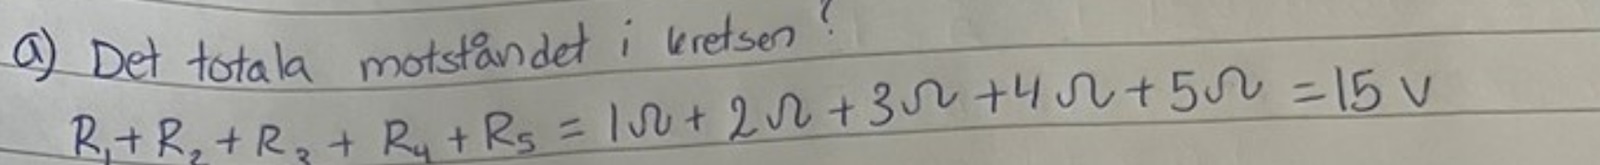 a) Det totala motståndet i kretsen?
R₁+R₂+R₃+R₄+R₅ = 1Ω+2Ω+3Ω+4Ω+5Ω =15 V